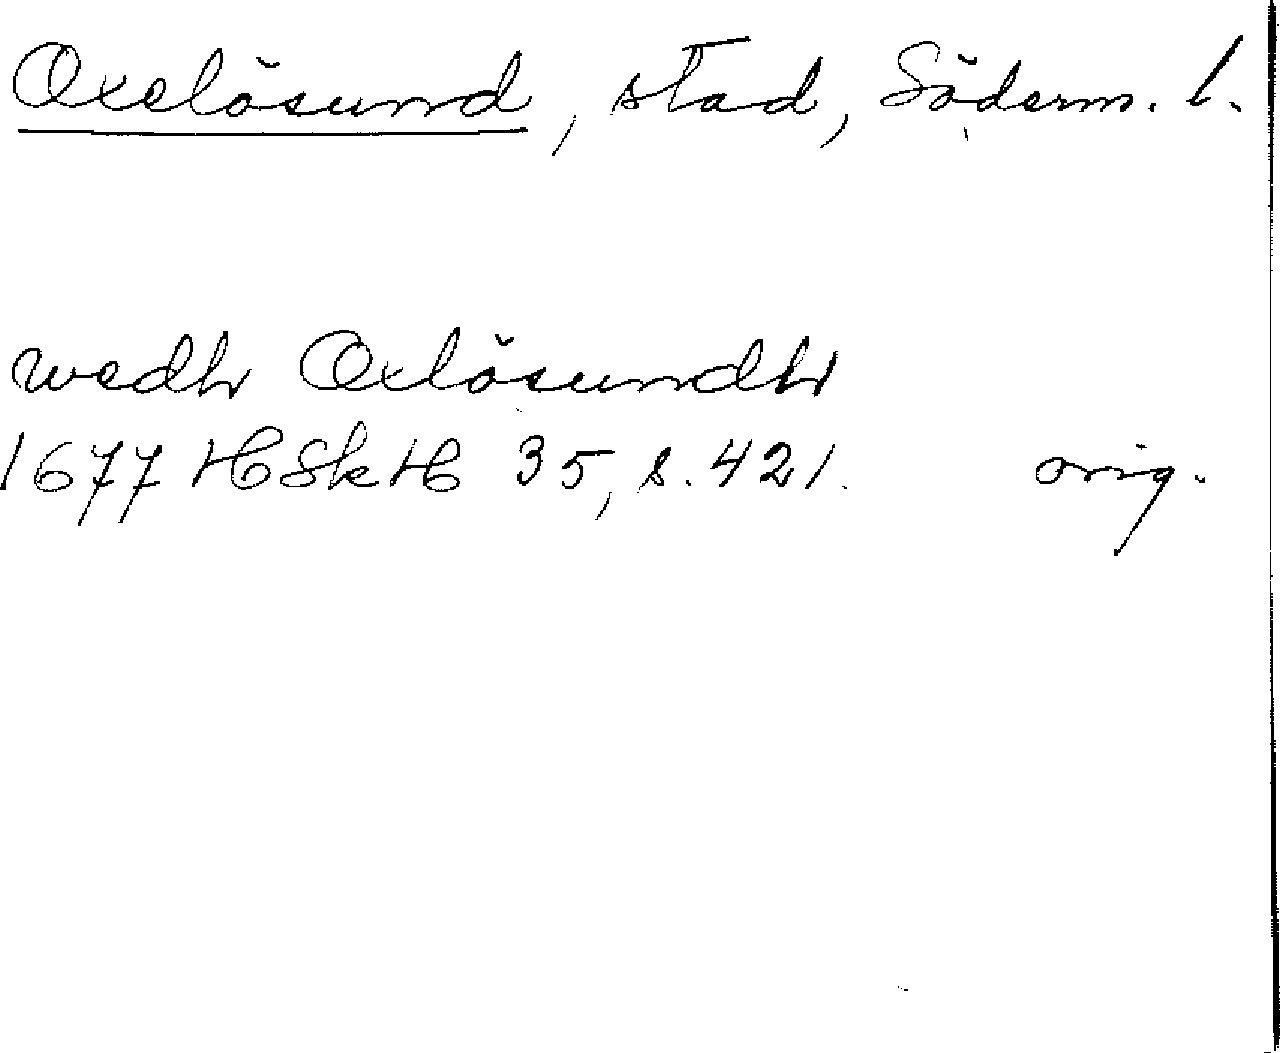 Oxelösund, stad, Söderm. l.
wedh Oxlösundh
1677 HSkH 35, s. 421. orig.